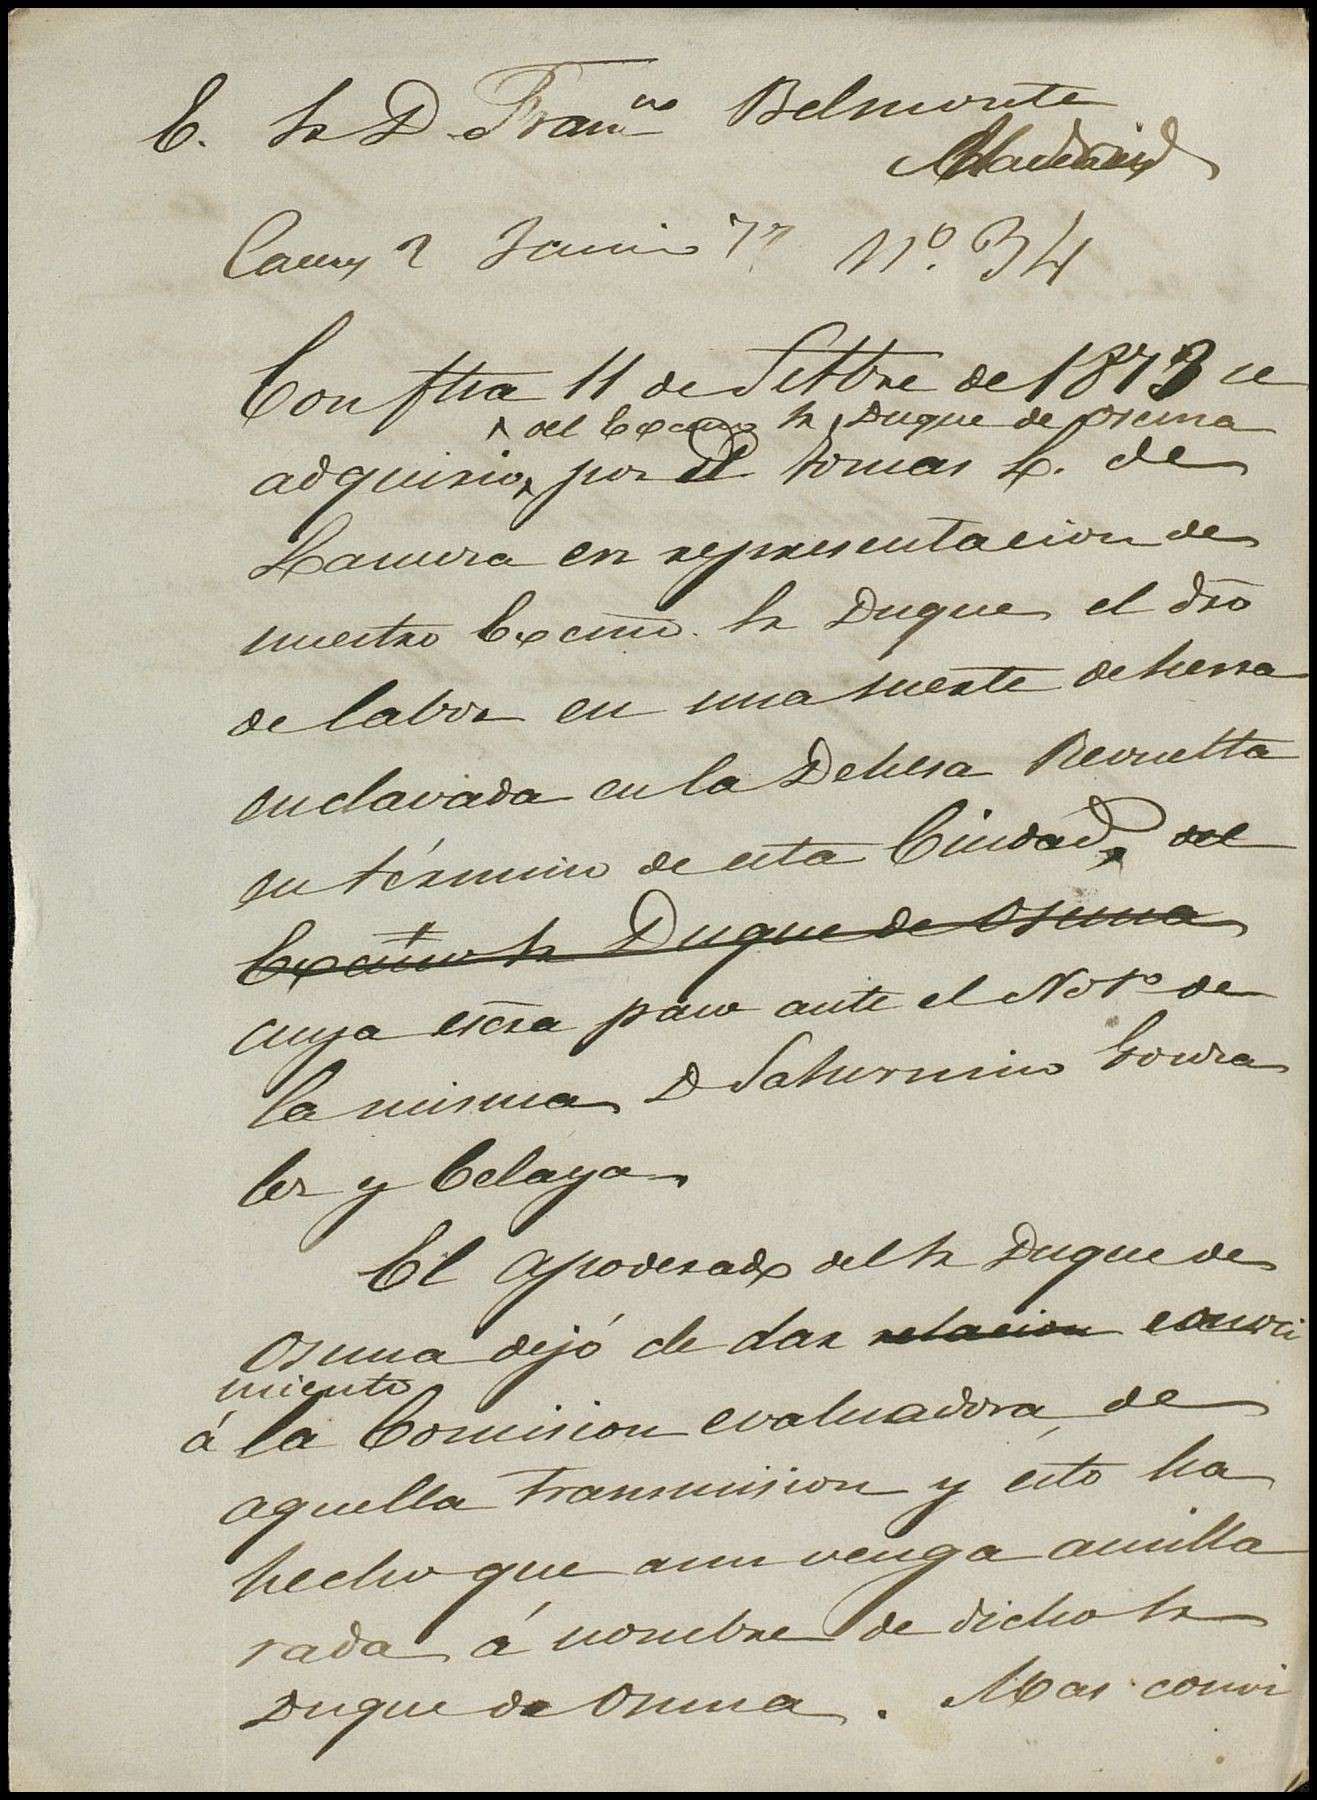 E. Sr D. Franco Belmonte
Madrid
2 Junio 77 Nº. 34
Con fha 11 de Settbre de 1873 se
del Excmo Sr Duque de Osuna
adquirio por D Tomas L. de
en representacion de
nuestro Excmo. Sr Duque el dro
de labor en una suerte de tierra
enclavada en la Dehesa Revuelta
en término de esta Ciudad, del
Excmo Sr Duque de Osuna
cuya escra paso ante el Noto de
la misma D Saturnino Gonza
lez y Celaya
El apoderado del Sr Duque de
Osuna dejó de dar relacion conoci
miento
á la Comision evaluadora de
aquella transmision y esto ha
hecho que aun venga amilla
rada á nombre de dicho Sr
Duque de Osuna. Mas convi